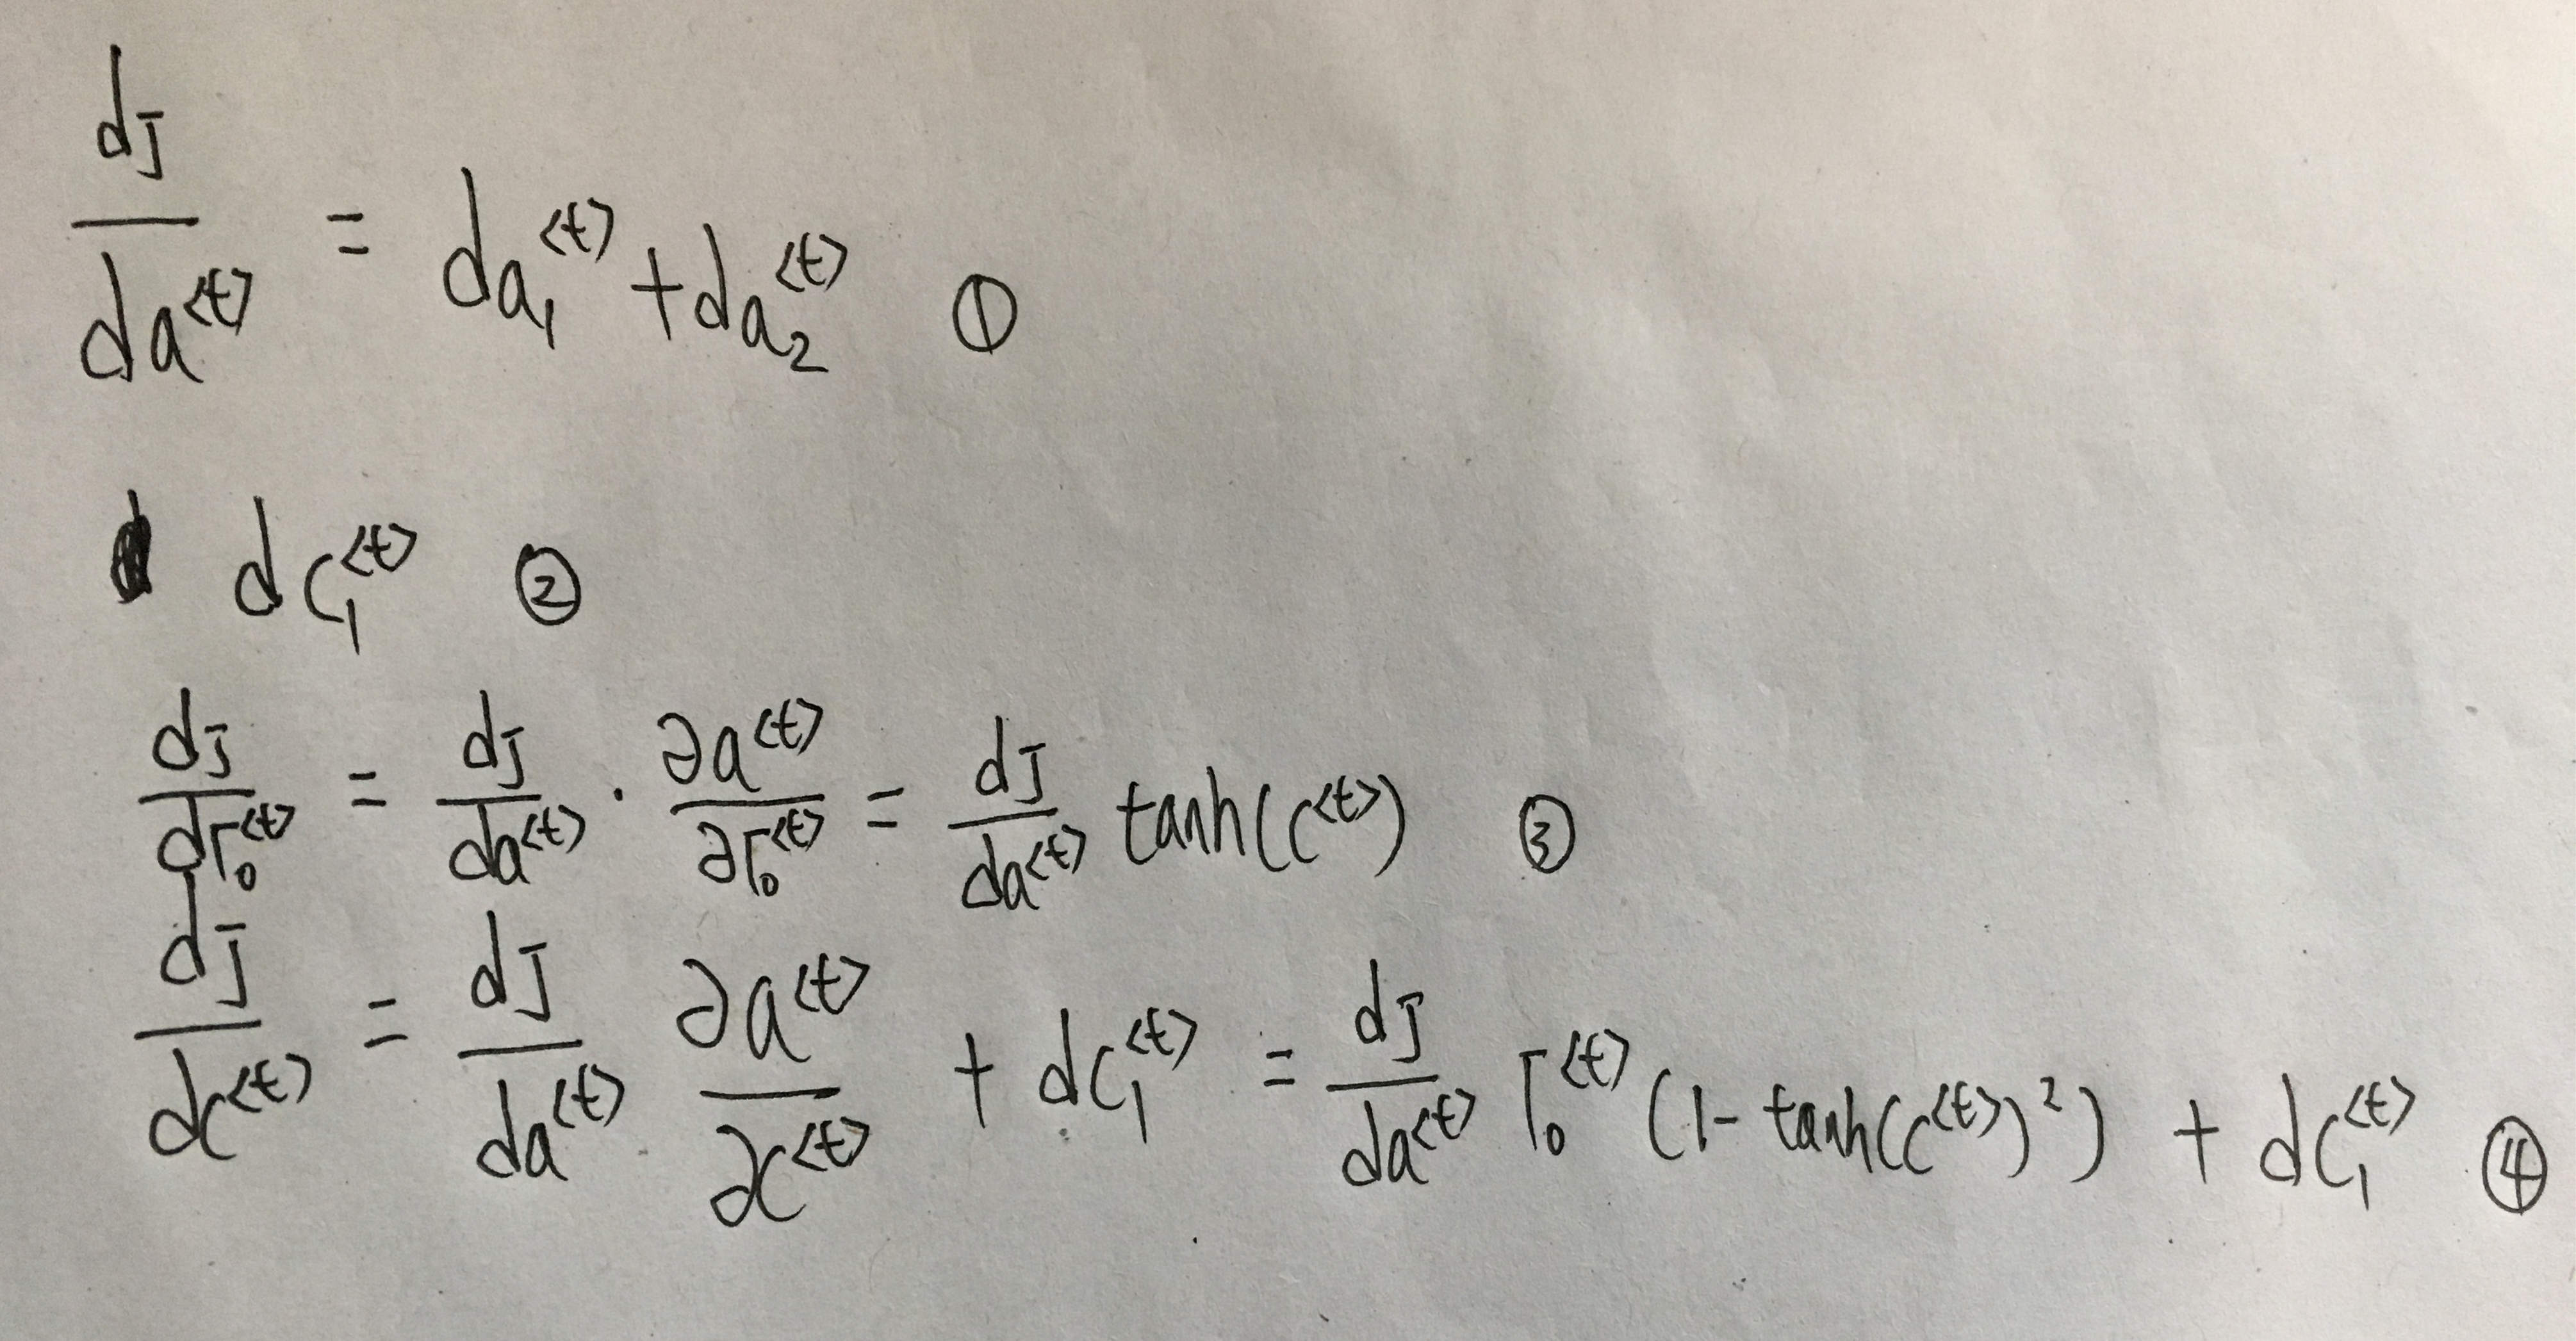 dJ/da^{<t>} = da_1^{<t>} + da_2^{<t>} ①
dc_1^{<t>} ②
dJ/dΓ_o^{<t>} = dJ/da^{<t>} · ∂a^{<t>}/∂Γ_o^{<t>} = dJ/da^{<t>} tanh(c^{<t>}) ③
dJ/dc^{<t>} = dJ/da^{<t>} ∂a^{<t>}/∂c^{<t>} + dc_1^{<t>} = dJ/da^{<t>} Γ_o^{<t>} (1 - tanh(c^{<t>})^2) + dc_1^{<t>} ④